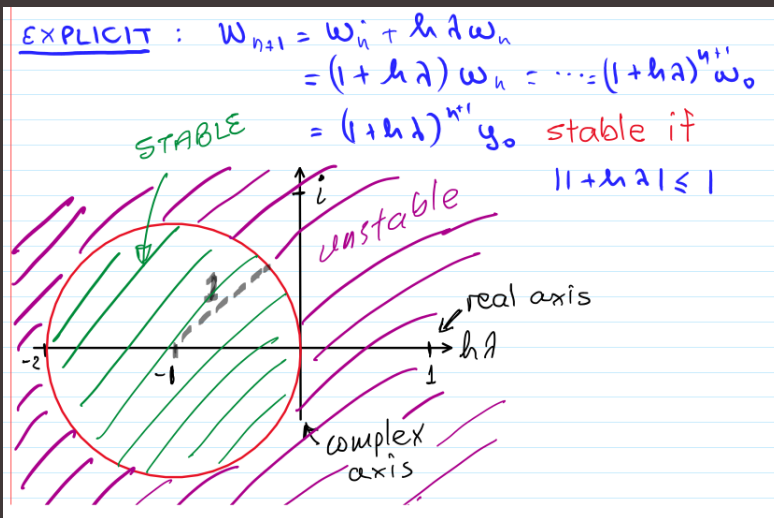 EXPLICIT : W_{n+1} = W_n + hλw_n
= (1 + hλ) w_n = ... = (1 + hλ)^{n+1} w_0
= (1 + hλ)^{n+1} y_0 stable if
|1 + hλ| ≤ 1
STABLE
i
unstable
1
real axis
-2
-1
1
hλ
complex
axis